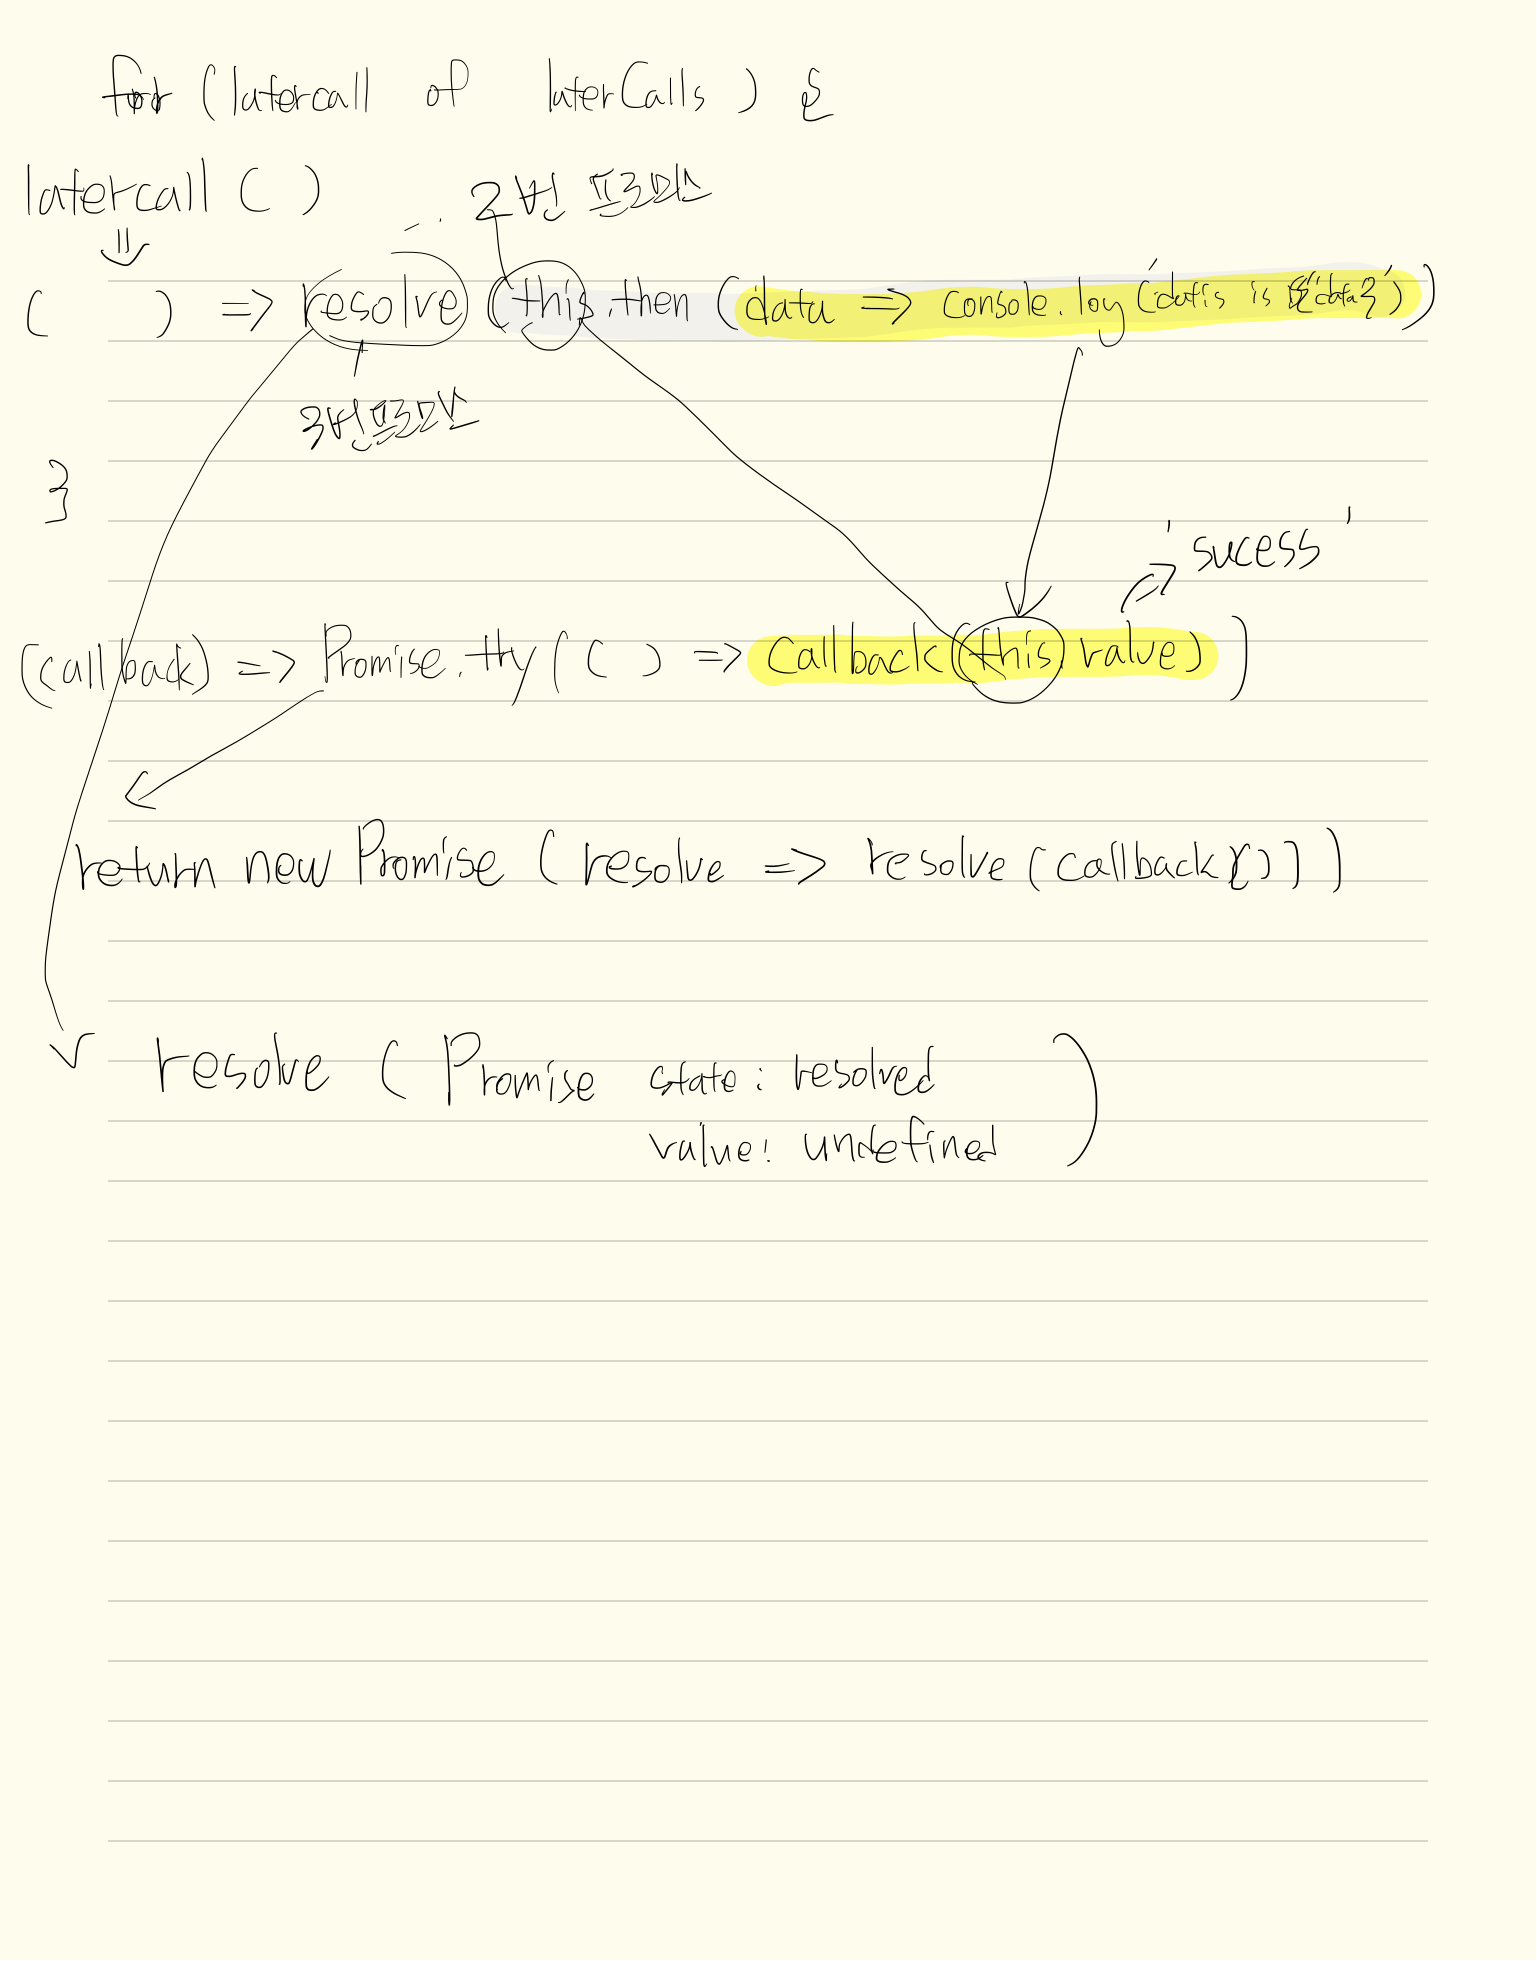 for (latercall of laterCalls) {
latercall ( )
2번 프로미스
( ) => resolve (this.then (data => console.log ('datis is ${data}'))
3번프로미스
}
'sucess'
(callback) => Promise.try ( ( ) => callback (this.value) )
return new Promise ( resolve => resolve (callback()))
resolve ( Promise state : resolved
value : undefined )